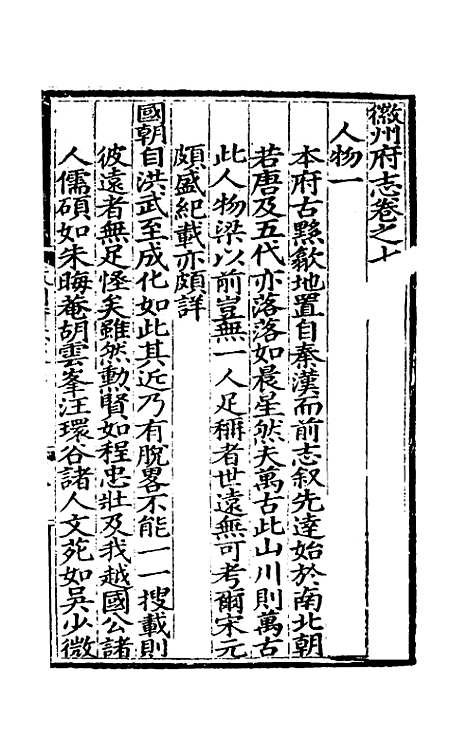 徽州府志卷之七
人物一
本府古黟歙地置自秦漢而前志叙先達始於南北朝
若唐及五代亦落落如晨星然夫萬古此山川則萬古
此人物梁以前豈無一人足稱者世遠無可考爾宋元
頗盛紀載亦頗詳
國朝自洪武至成化如此其近乃有脫畧不能一一搜載則
彼遠者無足怪矣雖然勳賢如程忠壯及我越國公諸
人儒碩如朱晦菴胡雲峯汪環谷諸人文苑如吳少微